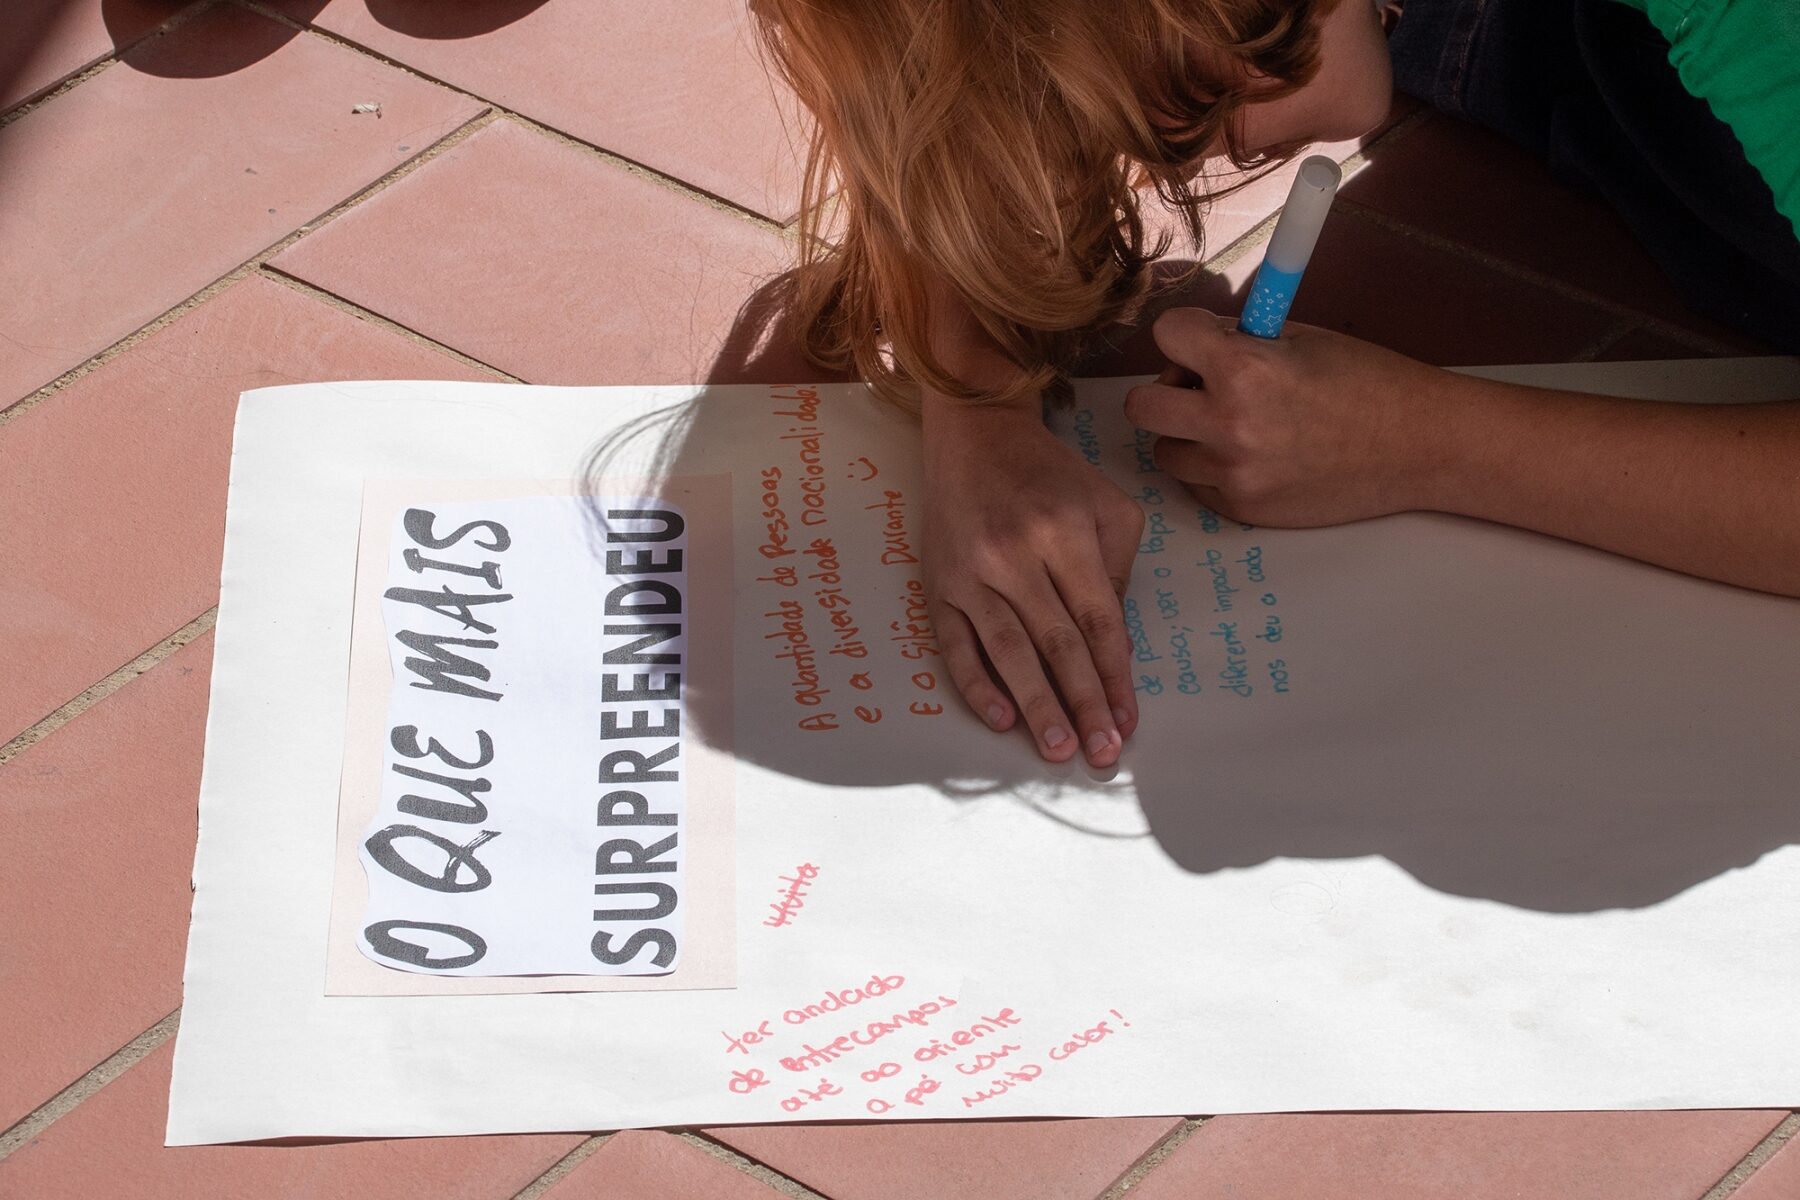 O QUE MAIS
SURPREENDEU
A quantidade de Pessoas
e a diversidade nacionalidade!
E o Silêncio Durante
mesmo
de pessoas
causa; ver o Papa de perto
diferente impacto
nos deu a cada
Muita
ter andado
de Entrecampos
até ao oriente
a pé com
muito calor!